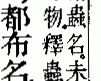 蟲名未
物釋蟲
都布名